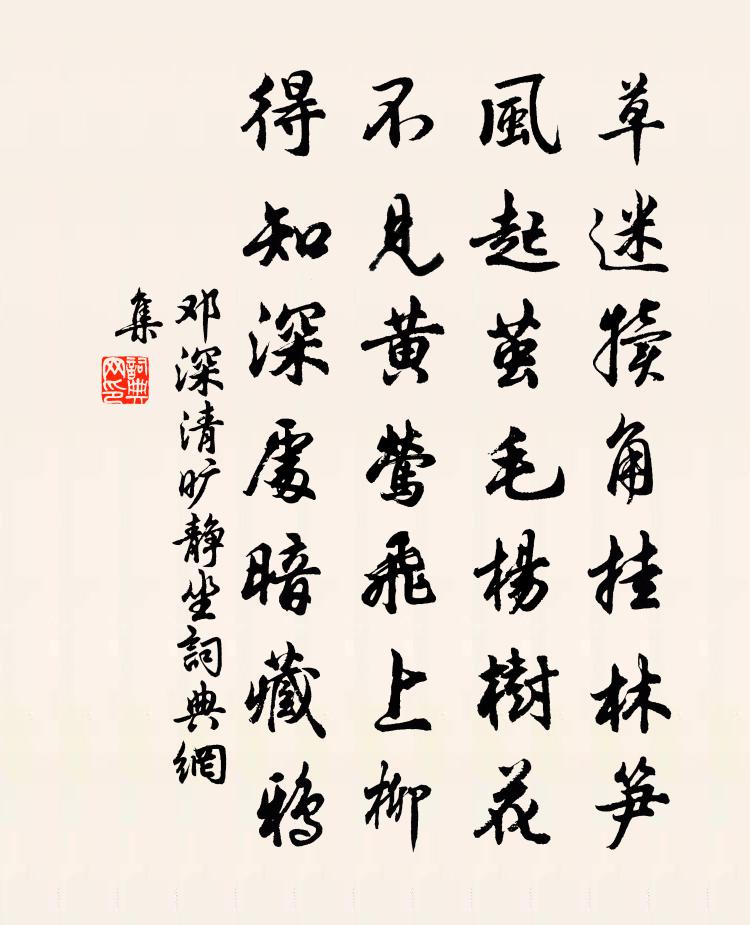 草迷犢角挂林笋
風起茧毛楊樹花
不見黃鶯飛上柳
得知深處暗藏鴉
邓深清旷静坐詞典網
集
詞典网印